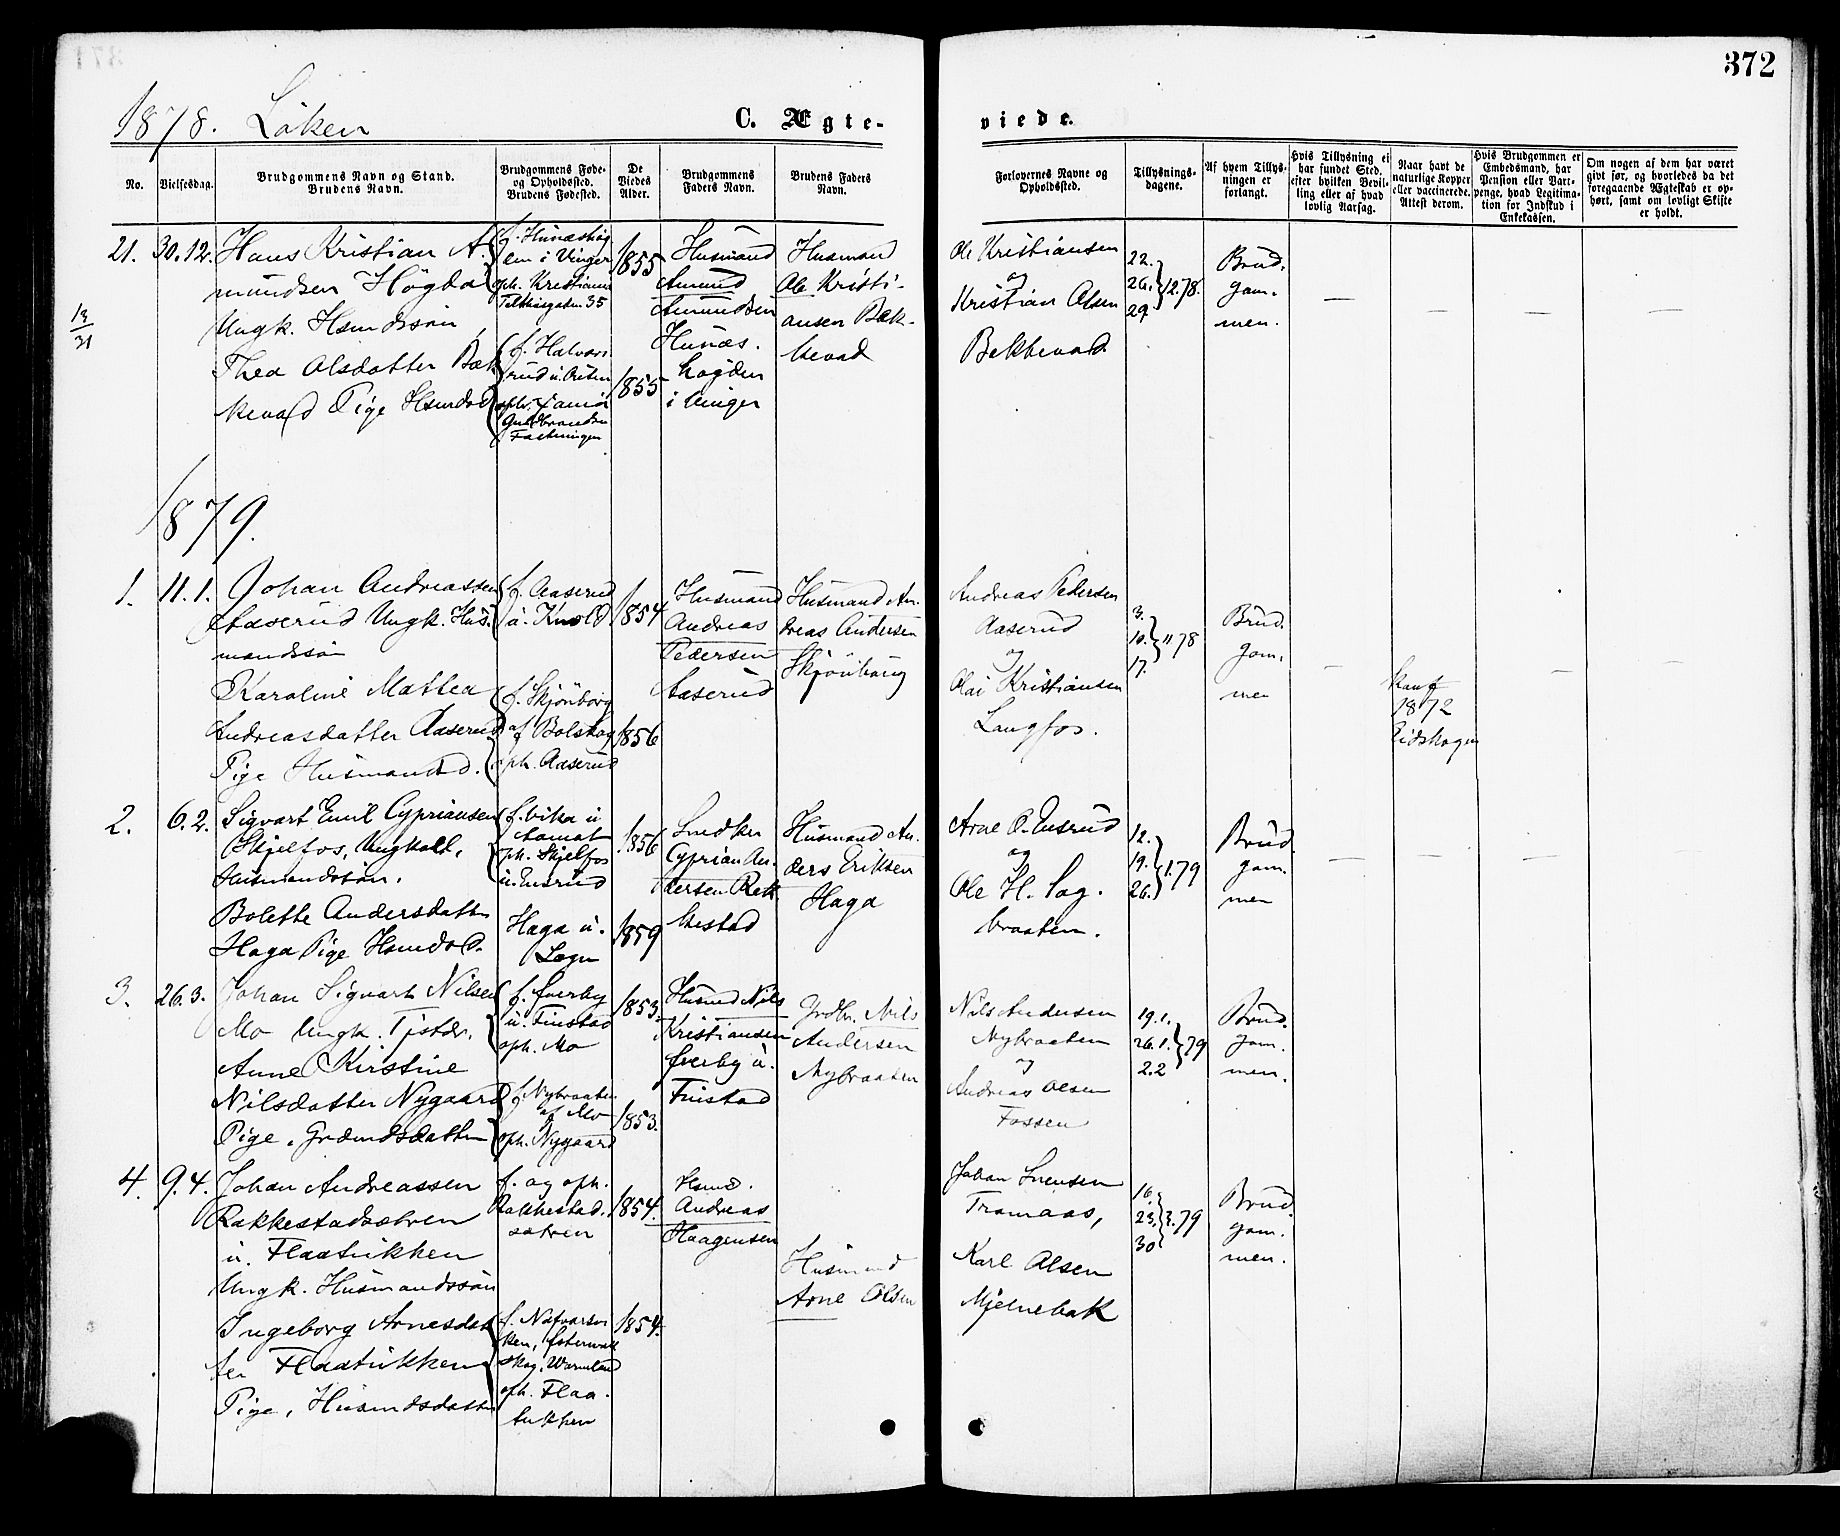 372
1878. Löken
C. Ægte-
viede.
No.
Vielsesdag.
Brudgommens Navn og Stand.
Brudens Navn.
Brudgommens Føde-
og Opholdssted.
Brudens Fødested.
De
Viedes
Alder.
Brudgommens
Faders Navn.
Brudens Faders
Navn.
Forlovernes Navne og
Opholdssted.
Tillysnings-
dagene.
Af hvem Tillys-
ningen er
forlangt.
Hvis Tillysning ei
har fundet Sted,
efter hvilken Bevil-
ling eller af hvad
lovlig Aarsag.
Naar havt de
naturlige Kopper
eller vaccinerede.
Attest derom.
Hvis Brudgommen er
Embedsmand, har
Pension eller Vart-
penge, hvad Legitima-
tion for Indskud i
Enkekassen.
Om nogen af dem har været
givt før, og hvorledes da det
foregaaende Ægteskab er op-
hørt, samt om lovligt Skifte
er holdt.
21.
30.12.
13/31
Hans Kristian A-
mundsen Högda
Ungk. Hsmdssön
Thea Olsdatter Bæk
kevad Pige Hsmdsd
em i Vinger
oph. Kristiania
f. Halvors
rud u. Austen
oph. Jamör
Guldbrandsen
1855
1855
Husmand
Amund
Amundsen
Hunæs-
högden
i Vinger
Husmand
Ole Kristi-
ansen Bæk-
kevad
Ole Kristiansen
og
Kristian Olsen
Bekkevad.
22.
26.
29.
12.78.
Brud.
gom.
men.
1879.
1.
11.1.
Johan Andreassen
Aaserud Ungk. Hus-
mandssön
Karoline Mathea
Andreasdatter Aaserud
Pige Husmandsd.
f. Aaserud
u. Knold
f. Skjönborg
af Bolskog
oph. Aaserud
1854
1856
Husmand
Andreas
Pedersen
Aaserud
Husmand An-
dreas Andersen
Skjönborg
Andreas Pedersen
Aaserud
og
Olai Kristiansen
Langfos.
3.
10.
17.
11 78
Brud.
gom.
men
1872
Eidskogen
2.
6.2.
Sigvart Emil Cypriansen
Skjelfos, Ungkall,
Husmandssön.
Bolette Andersdatter
Haga Pige Hsmdsd.
f. Vika u
oph. Skjelfos
u. Ensrud
Haga u.
Logn
1856
1859
Snedker
Cyprian An-
dersen Rak-
kestad
Husmand An-
ders Eriksen
Haga
Arne O. Ensrud
og
Ole H. Sag-
braaten.
12.
19.
26.
1.79
Brud.
gom.
men
3.
26.3.
Johan Sigvart Nilsen
Mo Ungk. Tjstdr.
Anne Kirstine
Nilsdatter Nygaard
Pige. Grdmdsdatter
f. Sverby
u. Finstad
oph. Mo
f. Nybraaten
af Mo
oph. Nygaard
1853.
1853.
Husmd Nils
Kristiansen
Sverby u.
Finstad
Grdbr. Nils
Andersen
Nybraaten
Nils Andersen
Nybraaten
og
Andreas Olsen
Fossen
19.1.
26.1.
2.2
79
Brud.
gom.
men.
4.
9.4.
Johan Andreassen
Rakkestadsætren
u. Flaatükken
Ungk. Husmandssön
Ingeborg Arnesdat
ter Flaatükken
Pige, Husmdsdatter
f. og oph.
Rakkestad.
sætren
f. Näfvarsvi
ken, Östermark
skog, Wärmland
oph. Flaa-
tükken
1854.
1854.
Hsmd.
Andreas
Haagensen
Husmand
Arne Olsen
Johan Svensen
Tramaas,
Karl Olsen
Mjelnebak
16.
23.
30
3.79
Brud.
gom.
men.